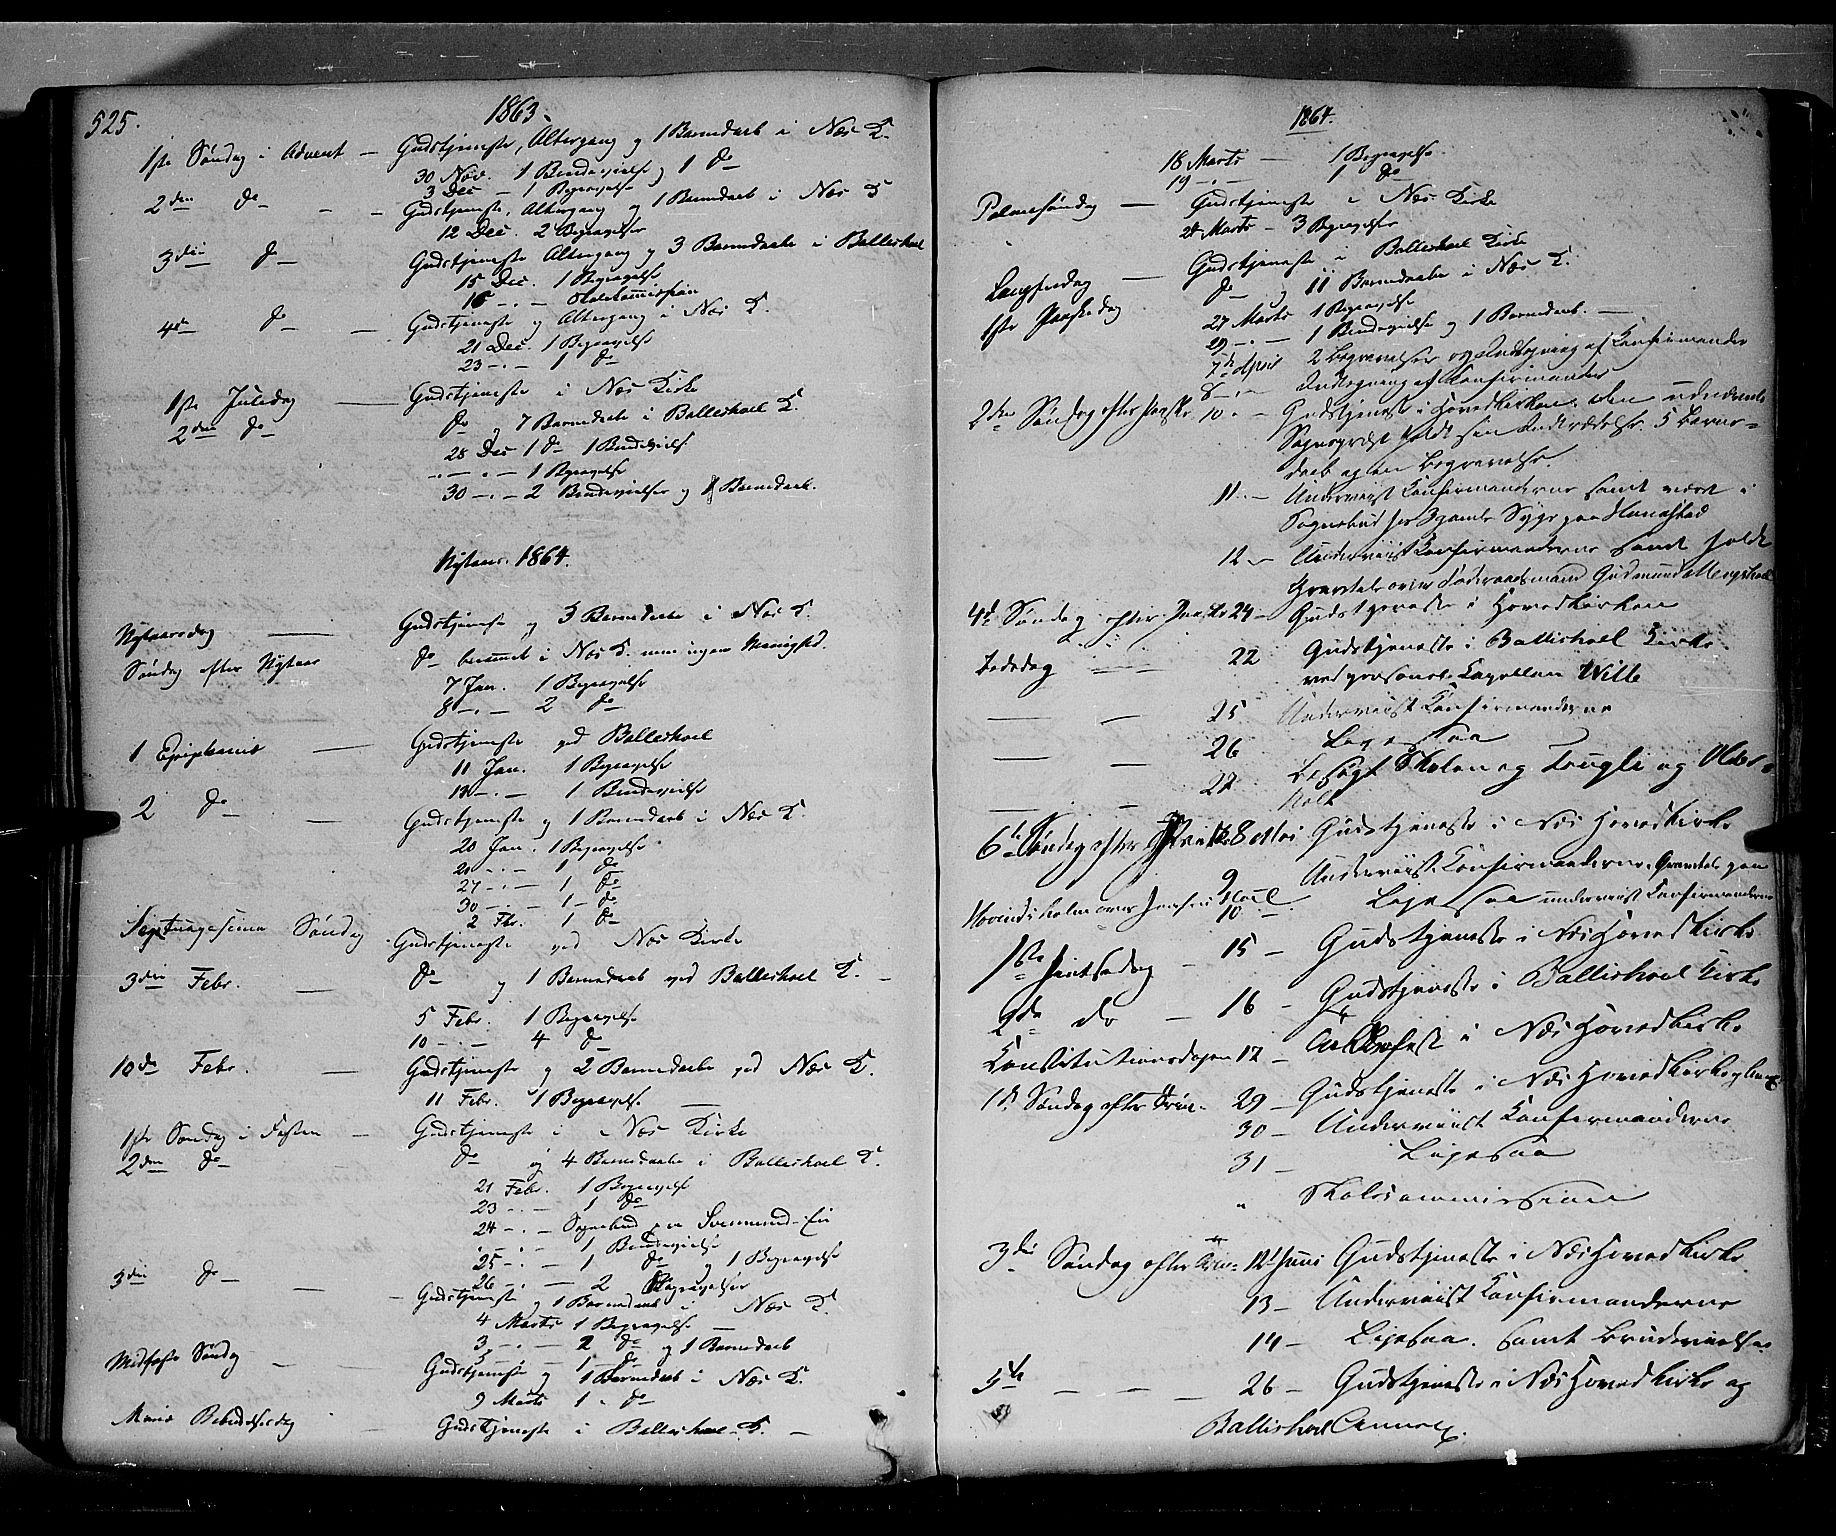 525.
1863.
1ste Søndag i Advent — Gudstjeneste, Altergang og 1 Barnedaab i Næs K.
30 Nov. 1 Brudevielse og 1 do
3 Dec — 1 Begravelse
2den do — Gudstjeneste, Altergang og 1 Barnedaab i Næs K
12 Dec. 2 Begravelser
3die do — Gudstjeneste Altergang og 3 Barnedaabe i Ballishoel
15 Dec. 1 Begravelse
16 -.- Skolekommission
4de do — Gudstjeneste og Altergang i Næs K.
21 Dec. 1 Begravelse
23 -.- 1 do
1ste Juledag — Gudstjeneste i Næs Kirke
2den do — do og 7 Barnedaabe i Ballishoel K.
28 Dec 1 do 1 Brudevielse
-.- -.- 1 Begravelse
30 -.- 2 Brudevielser og 1 Barnedaab.
Nytaar. 1864.
Nytaarsdag — Gudstjeneste og 3 Barnedaabe i Næs K.
Søndag efter Nytaar do berammet i Næs K. men ingen Menighed.
7 Jan. 1 Begravelse
8 -.- 2 do
1 Epiphanias — Gudstjeneste ved Ballishoel
11 Jan. 1 Begravelse
13 -.- 1 Brudevielse
2 do — Gudstjeneste og 1 Barnedaab i Næs K.
20 Jan. 1 Begravelse
20 -.- 1 do
27 -.- 1 do
30 -.- 1 do
2 Fbr. 1 do
Septuagesima Søndag Gudstjeneste ved Næs Kirke
3die Febr. — do og 1 Barnedaab ved Ballishoel K. —
5 Febr. 1 Begravelse
10 -.- 4 do
10de Febr. — Gudstjeneste og 2 Barnedaabe ved Næs K.
11 Febr. 1 Begravelse
1ste Søndag i Fasten — Gudstjeneste i Næs Kirke
2den do — do og 4 Barnedaabe i Ballishoel K.
21 Febr. 1 Begravelse
23 -.- 1 do
24 -.- Sognebud
-.- 1 Brudevielse
25 -.- 1 do og 1 Begravelse
26 -.- 2 Begravelser
3die do — Gudstjeneste og 1 Barnedaab i Næs K.
4 Marts 1 Begravelse
3 -.- 2 do og 1 Barnedaab
5 -.- 1 do
Midfaste Søndag — Gudstjeneste og 1 Barnedaab i Næs K.
9 Marts 1 do
Mariæ Bebudelsesdag Gudstjeneste i Ballishoel K. —
1864.
18 Marts — 1 Begravelse
19 -.- 1 do
Palmesøndag — Gudstjeneste i Næs Kirke
21 Marts — 3 Begravelser
Langfredag — Gudstjeneste i Ballishoel Kirke
1ste Paaskedag do og 11 Barnedaabe i Næs K.
27 Marts 1 Begravelse
29 -.- 1 Brudevielse og 1 Barnedaab. —
7de April 2 Begravelser og Indtegning af Konfirmander
8 -.- Indtegning af Konfirmander
2den Søndag efter Paaske 10 - Gudstjeneste i Hovedkirken. Den udnævnte
Sognepræst holdt sin Indtrædelse. 5 Barne-
daab og en Begravelse.
11 — Underviist Konfirmanderne samt været i
Sognebud hos 3 gamle Syge paa
12 — Underviist Konfirmanderne samt holdt
Gravtale over Føderaadsmand Gudmund Mengshoel
4de Søndag efter Paaske 24 — Gudstjeneste i Hovedkirken
Bededag — 22 Gudstjeneste i Ballishoel Kirke
ved personel Kapellan Wille
— — 25 Underviist Konfirmanderne
— — 26 Ligesaa
— — 27 Besøgt Skolen og
6te Søndag efter Paaske 8 Mai Gudstjeneste i Næs Hovedkirke
9 Underviist Konfirmanderne. Gravtale paa
Hovindsholm over Jensen Hoel
10 — Ligesaa underviist Konfirmanderne
1ste Pintsedag — 15 — Gudstjeneste i Næs Hovedkirke
2den do — 16 — Gudstjeneste i Ballishoel Kirke
Constitutionsdagen 17 — i Næs Hovedkirke
1ste Søndag efter Trin. 29 — Gudstjeneste i Næs Hovedkirke
30 — Underviist Konfirmanderne
31 — Ligesaa
" Skolecommission
3die Søndag efter Trin. 12te Juni Gudstjeneste i Næs Hovedkirke.
13 — Underviist Konfirmanderne
14 — Ligesaa. samt Brudevielse.
5te — — — 26 — Gudstjeneste i Næs Hovedkirke og
Ballishoel Annex.